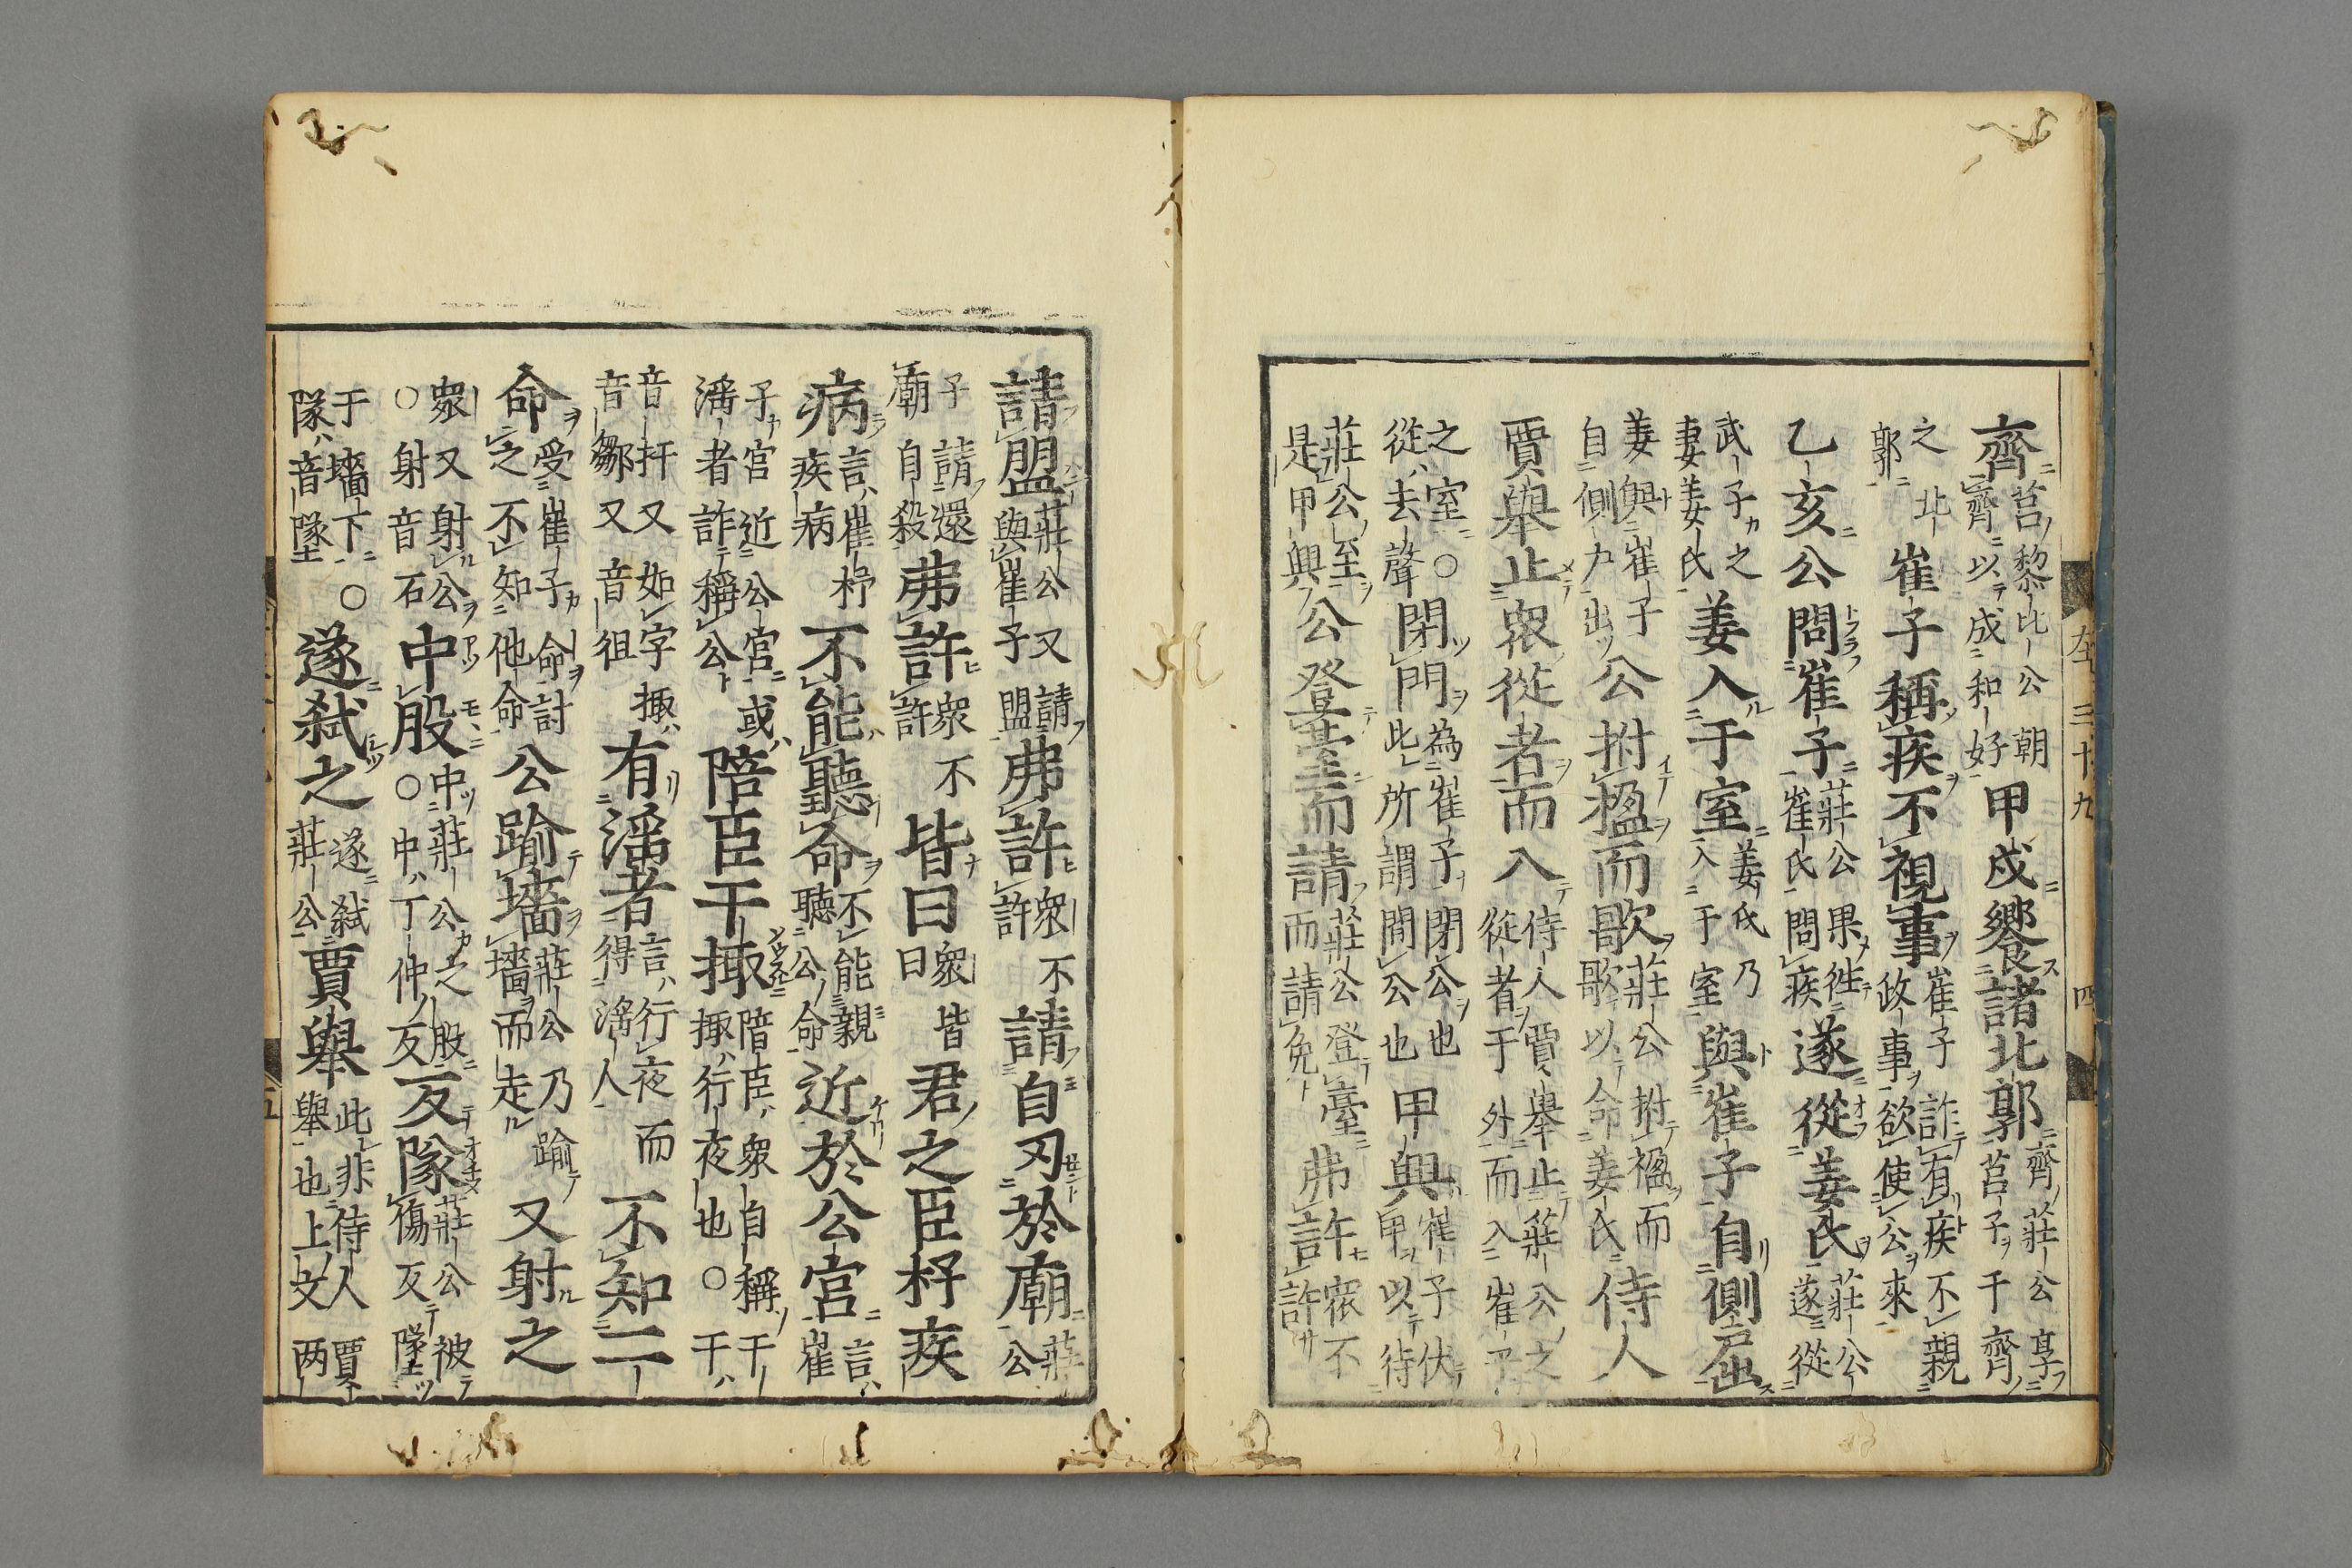 左三十九 四
齊莒黎比公朝齊以成和好甲戌饗諸北郭齊莊公享莒子于齊
之北郭崔子稱疾不視事崔子詐有疾不親政事欲使公來
乙亥公問崔子莊公果徃崔氏問疾遂從姜氏莊公遂從
武子之妻姜氏姜入于室姜氏乃入于室與崔子自側戶出
姜與崔子自側戶出公拊楹而歌莊公拊楹而歌以命姜氏侍人
賈舉止衆從者而入侍人賈舉止莊公之從者于外而入崔子
之室○從去聲閉門為崔子閉公也此所謂閒公也甲興崔子伏甲以待
莊公至是甲興公登臺而請莊公登臺而請免弗許衆不許
請盟莊公又請與崔子盟弗許衆不許請自刃於廟莊公
子請還廟自殺弗許衆不許皆曰衆皆曰君之臣杼疾
病言崔杼疾病不能聽命不能親聽公命近於公宮言崔
子宮近公宮或淫者詐稱公陪臣干掫陪臣衆自稱掫行夜也○干
音扞又如字掫音鄒又音徂有淫者言行夜而得淫人不知二
命受崔子命討之不知他命公踰墻莊公乃踰墻而走又射之
衆又射公○射音石中股中莊公之股○中丁仲反反隊莊公被傷反墜
于墻下○隊音墜遂弑之遂弑莊公賈舉此非侍人賈舉也上文两
五